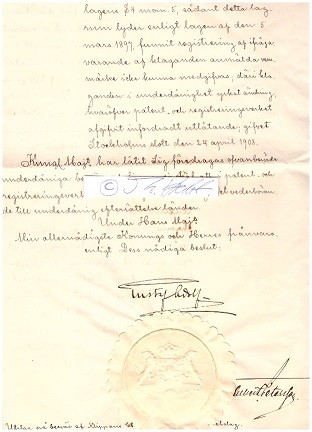 lagens § 4 mom. 5, sådant detta lag
rum lyder enligt lagen af den 5
mars 1897, funnit registrering af ifråga
varande af klaganden anmälda varu
märke icke kunna medgifvas; däri kla
ganden i underdånighet yrkat ändring,
hvaröfver patent- och registreringsverket
afgifvit infordradt utlåtande; gifvet
Stockholms slott den 24 april 1908.
Kungl. Maj:t har låtit Sig föredragas ofvanberörda
underdåniga patent- och
registreringsverket vederböran
de till underdånig efterrättelse länder.
Under Hans Maj:ts
Min allernådigste Konungs och Herres frånvaro,
enligt Dess nådiga beslut:
Gustaf Adolf
på besvär af Klippans